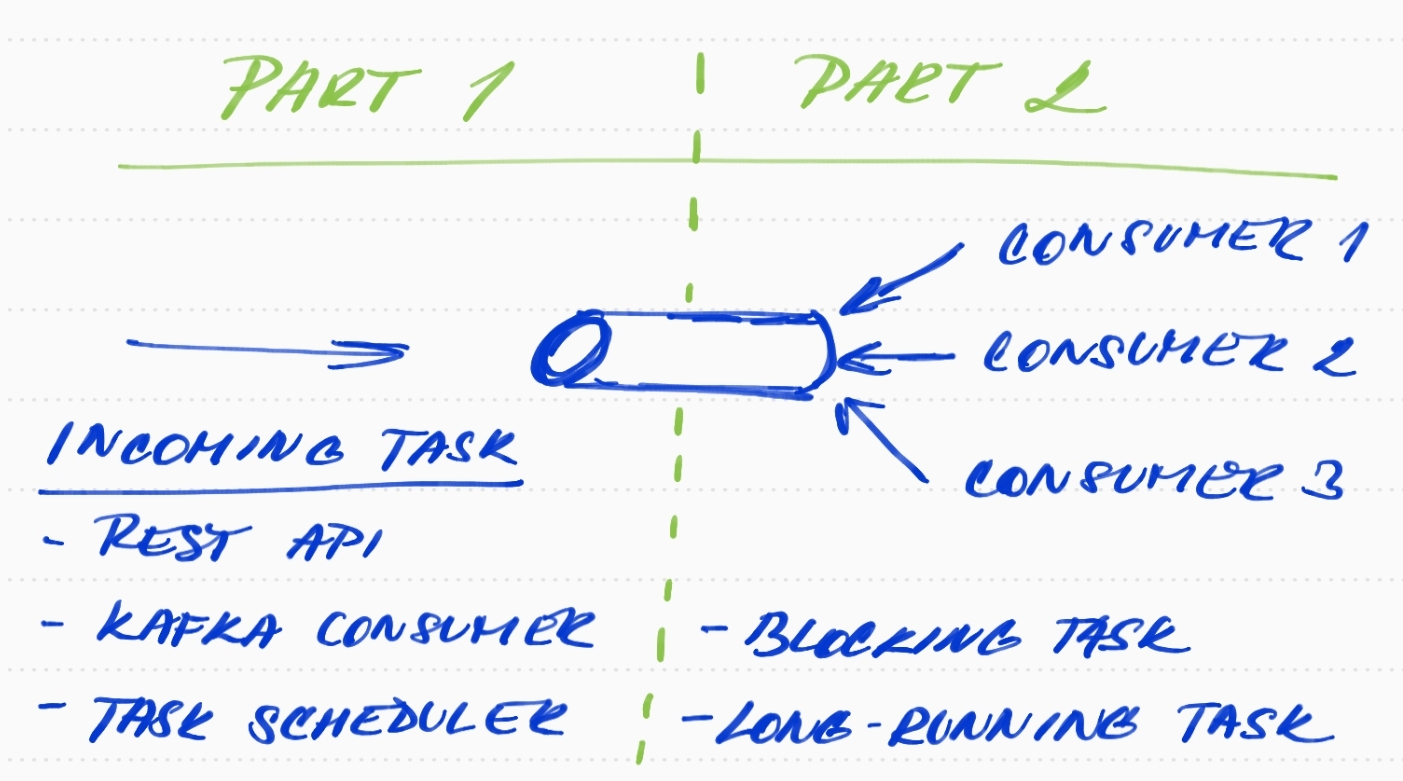 PART 1
PART 2
CONSUMER 1
CONSUMER 2
CONSUMER 3
INCOMING TASK
- REST API
- KAFKA CONSUMER
- TASK SCHEDULER
- BLOCKING TASK
- LONG-RUNNING TASK